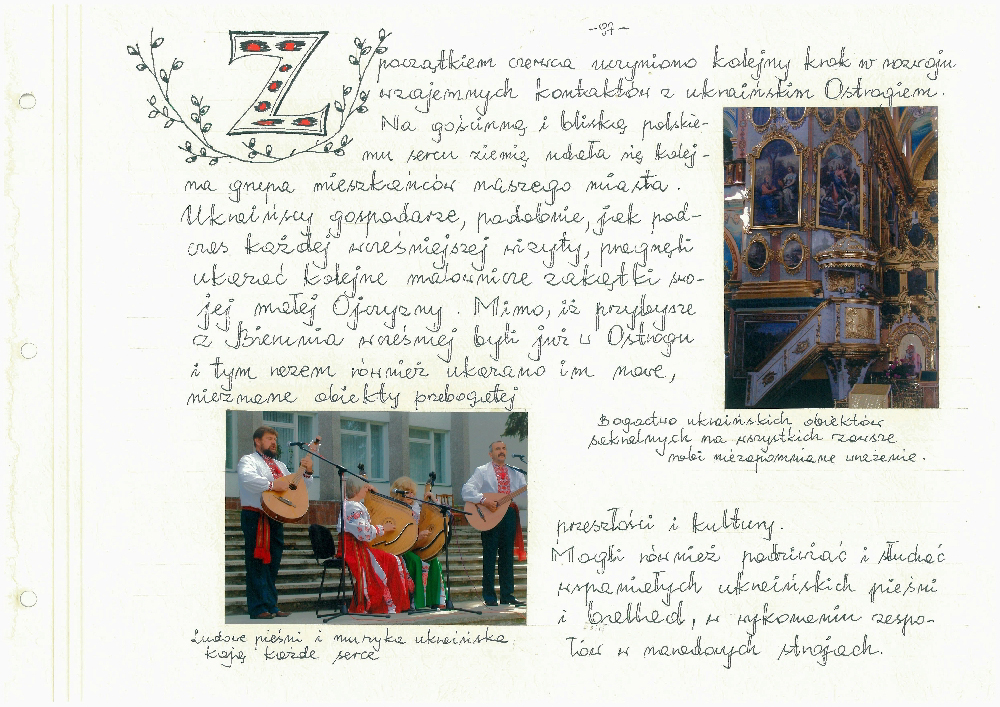 -87-
Z początkiem czerwca uczyniono kolejny krok w rozwoju
wzajemnych kontaktów z ukraińskim Ostrogiem.
Na gościnną i bliską polskie-
mu sercu ziemię udała się kolej-
na grupa mieszkańców naszego miasta.
Ukraińscy gospodarze, podobnie, jak pod-
czas każdej wcześniejszej wizyty, pragnęli
ukazać kolejne malownicze zakątki swo-
jej małej Ojczyzny. Mimo, iż przybysze
z Bierunia wcześniej byli już w Ostrogu
i tym razem również ukazano im nowe,
nieznane obiekty przebogatej
Bogactwo ukraińskich obiektów
sakralnych na wszystkich zawsze
robi niezapomniane wrażenie.
przeszłości i kultury.
Mogli również podziwiać i słuchać
wspaniałych ukraińskich pieśni
i ballad, w wykonaniu zespo-
łów w narodowych strojach.
Ludowe pieśni i muzyka ukraińska
koją każde serce